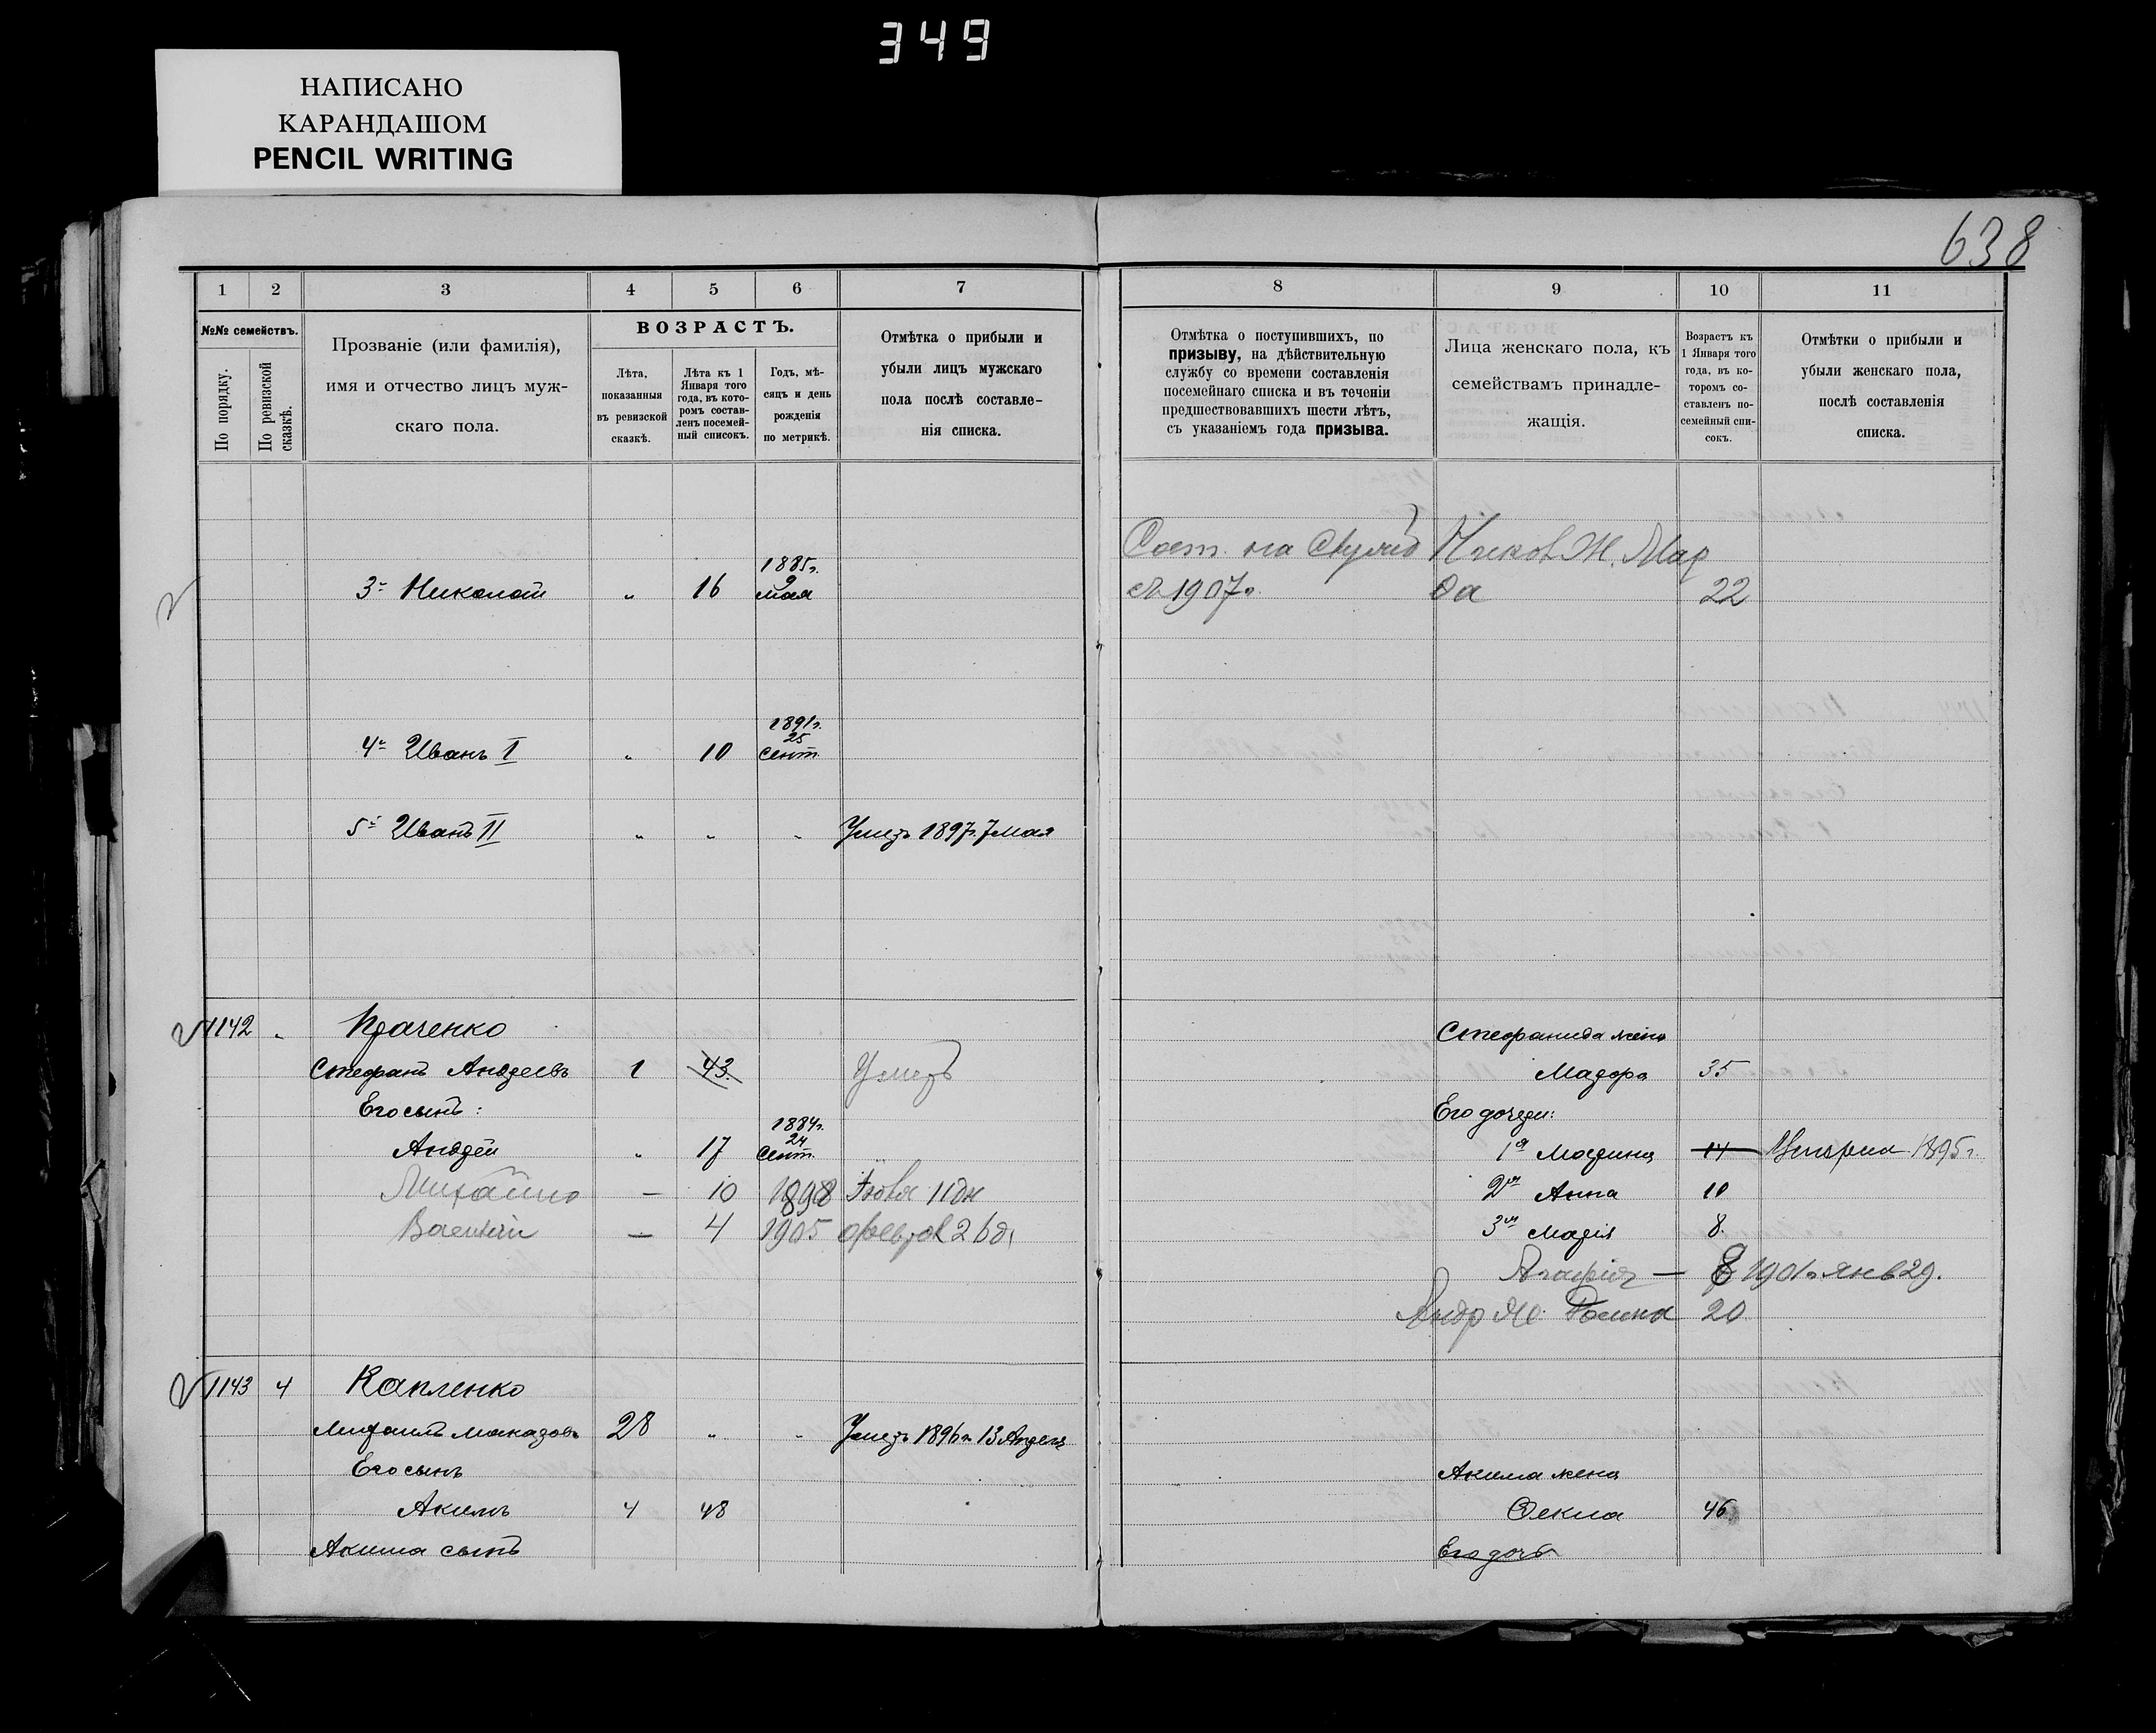 349
НАПИСАНО
КАРАНДАШОМ
PENCIL WRITING
638
1 2 3 4 5 6 7 8 9 10 11
№№ семействъ.
По порядку.
По ревизской сказкѣ.
Прозваніе (или фамилія),
имя и отчество лицъ муж-
скаго пола.
ВОЗРАСТЪ.
Лѣта,
показанныя
въ ревизской
сказкѣ.
Лѣта къ 1
Января того
года, въ кото-
ромъ состав-
ленъ посемей-
ный списокъ.
Годъ, мѣ-
сяцъ и день
рожденія
по метрикѣ.
Отмѣтка о прибыли и
убыли лицъ мужскаго
пола послѣ составле-
нія списка.
Отмѣтка о поступившихъ, по
призыву, на дѣйствительную
службу со времени составленія
посемейнаго списка и въ теченіи
предшествовавшихъ шести лѣтъ,
съ указаніемъ года призыва.
Лица женскаго пола, къ
семействамъ принадле-
жащія.
Возрастъ къ
1 Января того
года, въ ко-
торомъ со-
ставленъ по-
семейный спи-
сокъ.
Отмѣтки о прибыли и
убыли женскаго пола,
послѣ составленія
списка.
Сост. на Мар
1885г.
3й Николай „ 16 9 мая 1907г. 22
1891г.
25
4й Иванъ I „ 10 сент.
5й Иванъ II „ „ „ Умеръ 1897г. 7 мая
1142 „ Стефанида жена
Стефанъ Авдеевъ 1 43 Умеръ 35
Его сынъ: Его дочери:
1884г.
24
Авдей „ 17 сент. 1я Марина 14 1895г.
Михайло — 10 1898 11 дн 2я Анна 10
— 4 1905 26 д. 3я Марія 8
Агафия — 8 1901г. янв 29.
20
1143 4 Капленко
Михаилъ Макаровъ 28 „ „ Умеръ 1896г. 13 Апреля
Его сынъ Акима жена
Акимъ 4 48 Фекла 46
Акима сынъ Его дочь